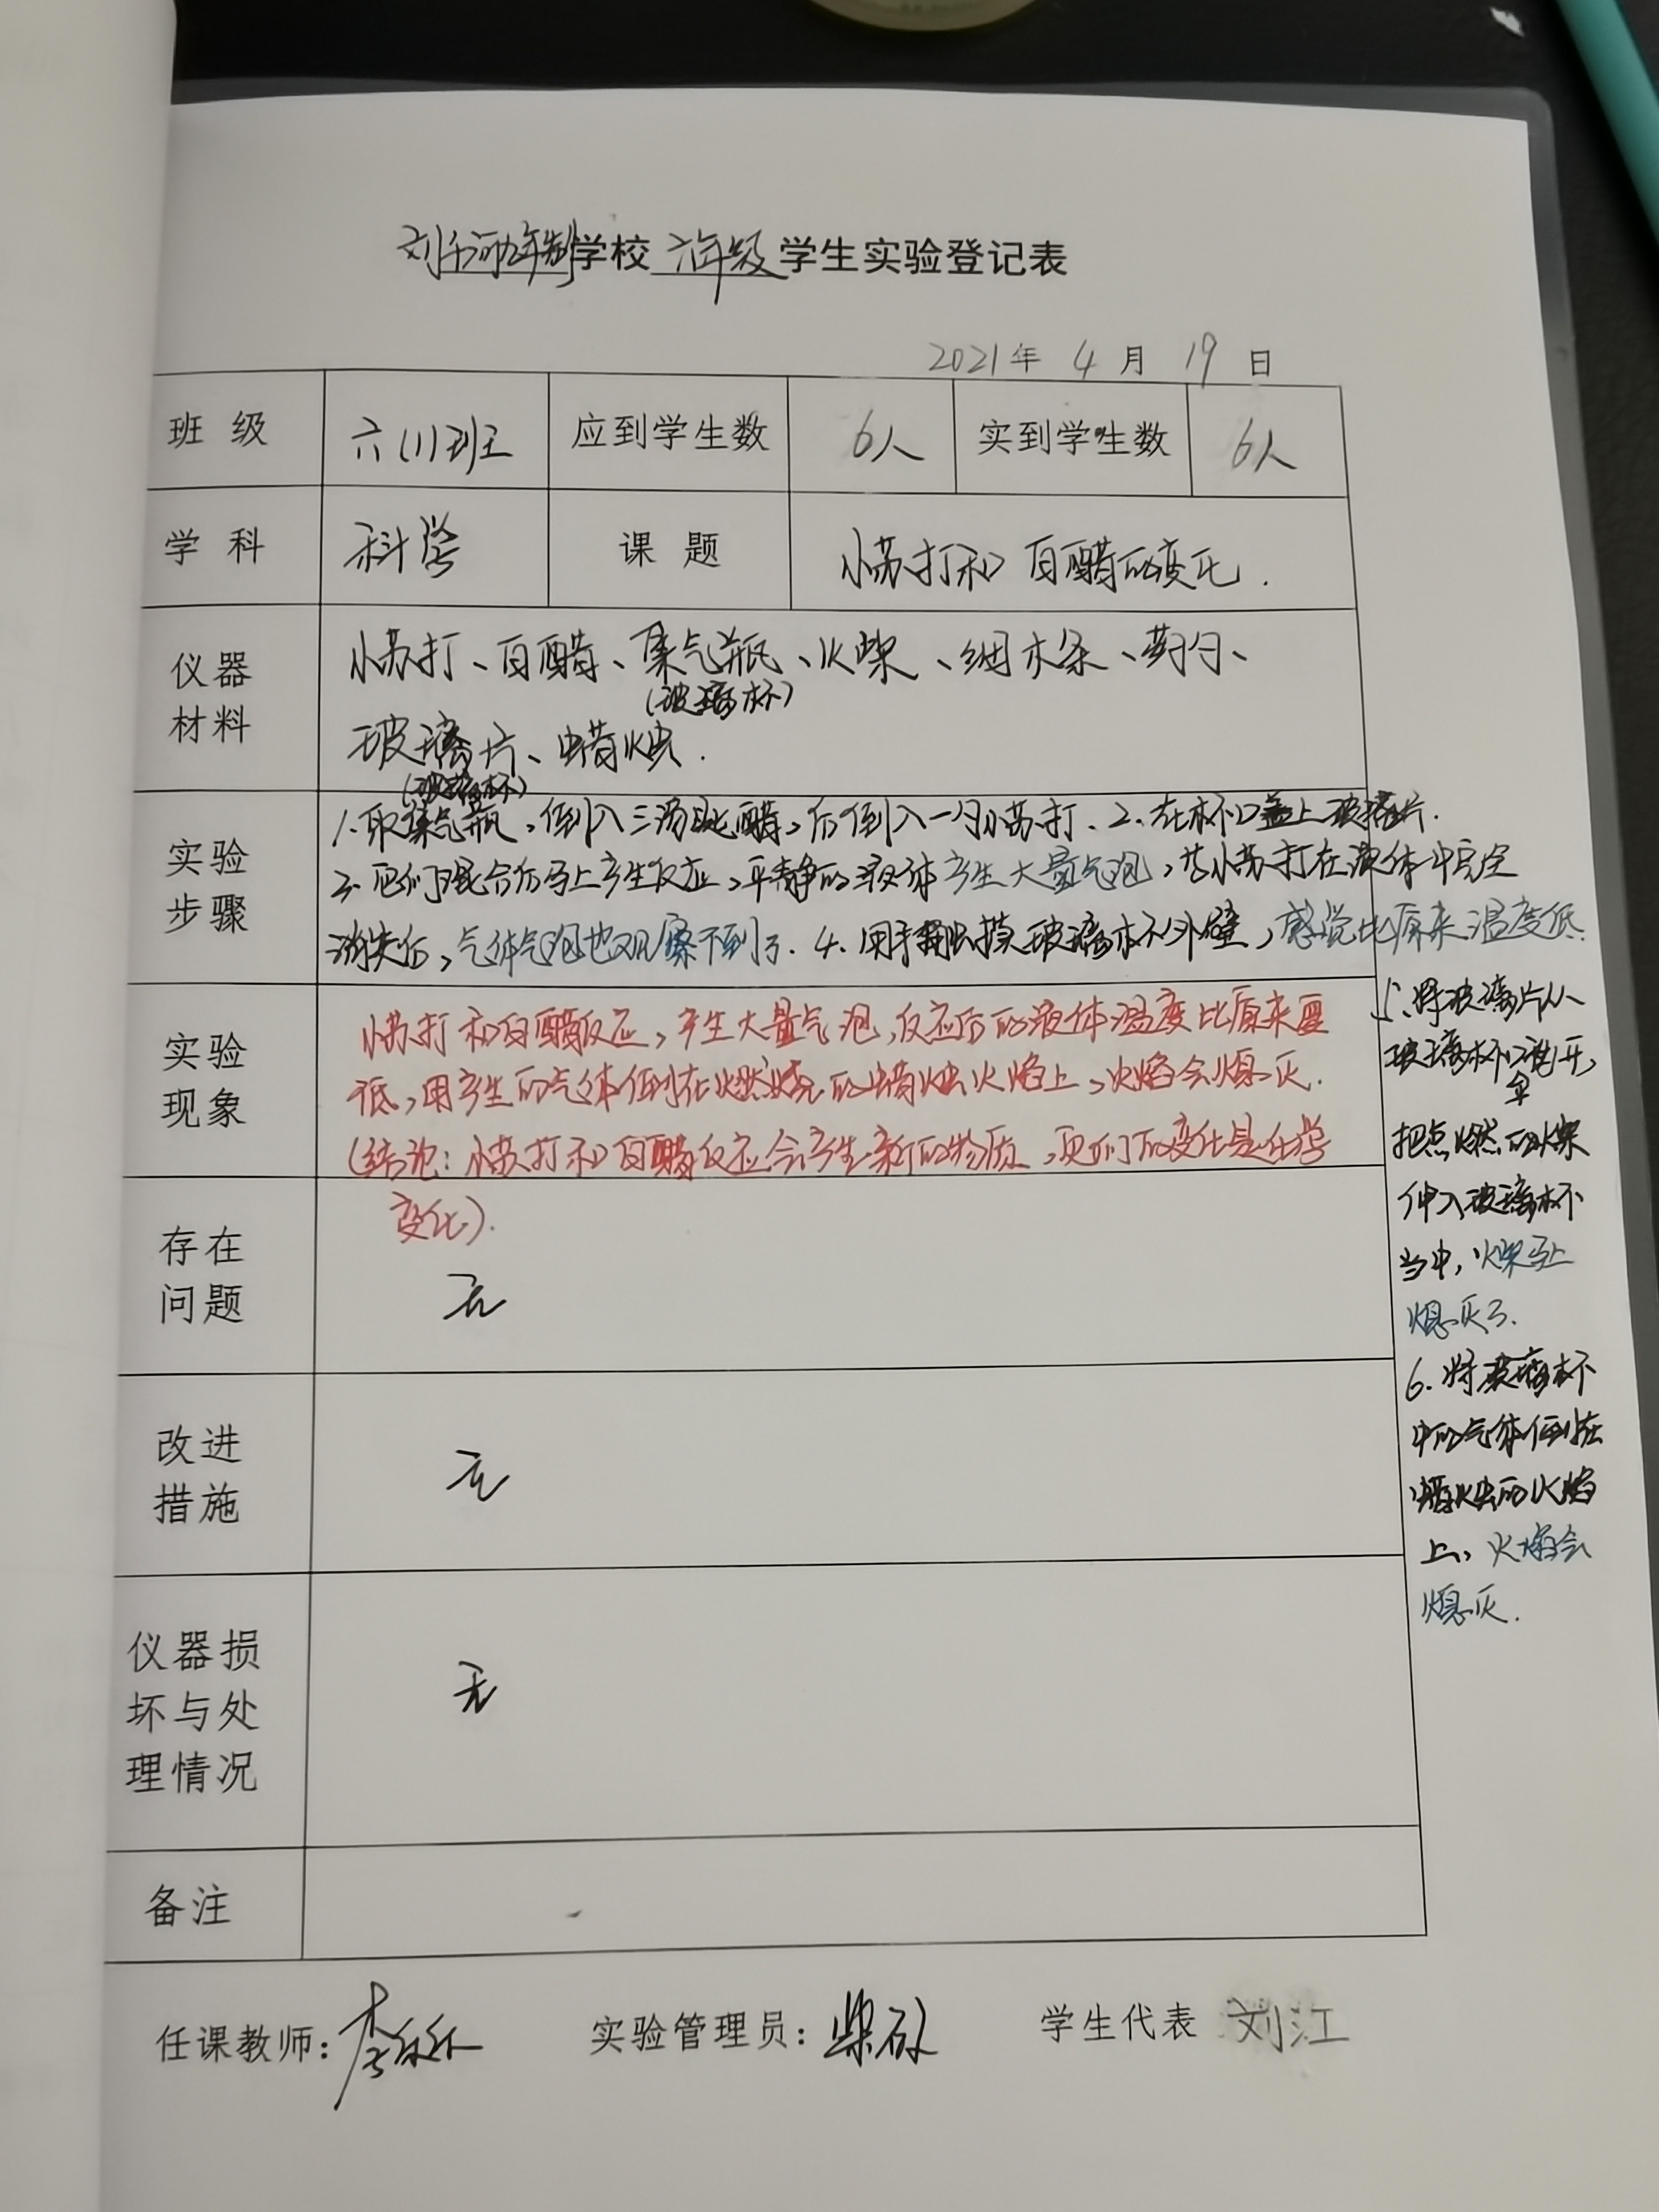 刘千河九年制学校 六年级 学生实验登记表
2021年 4月 19日
班级 六(1)班 应到学生数 6人 实到学生数 6人
学科 科学 课题 小苏打和白醋的变化.
仪器材料
小苏打、白醋、集气瓶、火柴、细木条、药勺、
(玻璃杯)
玻璃片、蜡烛.
实验步骤
(玻璃杯)
1.取集气瓶,倒入三汤匙醋,后倒入一勺小苏打、2.在杯口盖上玻璃片.
3.它们混合后马上产生反应,平静的液体产生大量气泡,当小苏打在液体中完全
消失后,气体气泡也观察不到了.4.用手触摸玻璃杯外壁,感觉比原来温度低.
5.将玻璃片从
玻璃杯口拿开,
把点燃的火柴
伸入玻璃杯
当中,火柴马上
熄灭了.
6.将玻璃杯
中的气体倒在
蜡烛的火焰
上,火焰会
熄灭.
实验现象
小苏打和白醋反应,产生大量气泡,反应后的液体温度比原来要
低,用产生的气体倒在燃烧的蜡烛火焰上,火焰会熄灭.
(结论:小苏打和白醋反应会产生新的物质,它们的变化是化学
变化).
存在问题
无
改进措施
无
仪器损坏与处理情况
无
备注
任课教师: 实验管理员: 学生代表 刘江